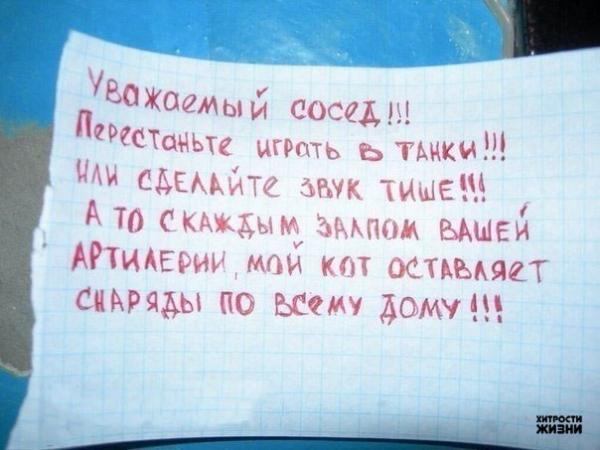 Уважаемый сосед!!!
Перестаньте играть в танки!!!
Или сделайте звук тише!!!
А то с каждым залпом вашей
артилерии, мой кот оставляет
снаряды по всему дому!!!
ХИТРОСТИ
ЖИЗНИ